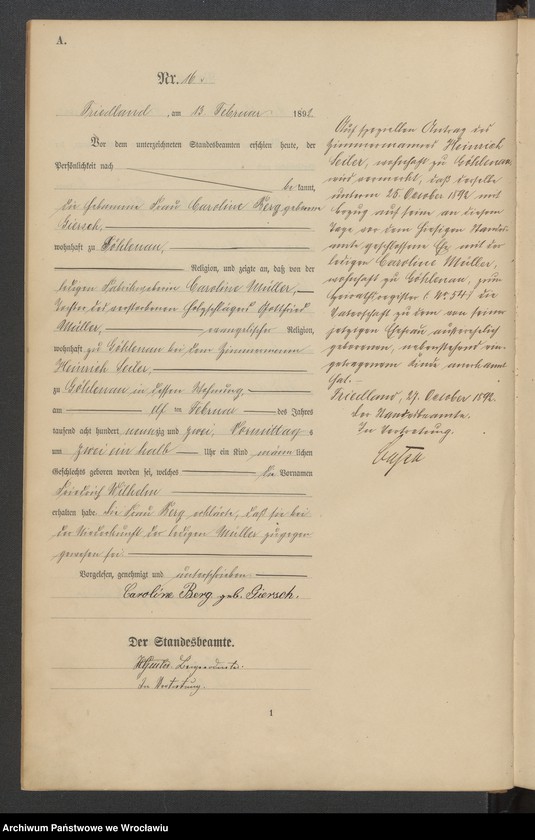 A.
Nr. 16.
Friedland, am 13 Februar 1892
Vor dem unterzeichneten Standesbeamten erschien heute, der
Persönlichkeit nach
bekannt,
die Hebamme Frau Caroline Berg geborene
Giersch,
wohnhaft zu Göhlenau,
Religion, und zeigte an, daß von der
ledigen Fabrikarbeiterin Caroline Müller,
Tochter des verstorbenen Gottfried
Müller, evangelischer Religion,
wohnhaft zu Göhlenau bei dem Zimmermann
Heinrich Seiler,
zu Göhlenau in dessen Wohnung,
am elf ten Februar des Jahres
tausend acht hundert neunzig und zwei, Vormittag s
um zwei ein halb Uhr ein Kind männlichen
Geschlechts geboren worden sei, welches die Vornamen
Friedrich Wilhelm
erhalten habe. Die Frau Berg erklärte, daß sie bei
der Niederkunft der ledigen Müller zugegen
gewesen sei
Vorgelesen, genehmigt und unterschrieben
Caroline Berg geb. Giersch.
Der Standesbeamte.
In Vertretung.
1
Auf speziellen Antrag des
Zimmermannes Heinrich
Seiler, wohnhaft zu Göhlenau,
wird vermerkt, daß derselbe
unterm 25. October 1892 mit
Bezug auf seine an diesem
Tage vor dem hiesigen Standes-
amte geschlossene Ehe mit der
ledigen Caroline Müller,
wohnhaft zu Göhlenau, zum
Heirathsregister (No 54) die
Vaterschaft zu dem von seiner
jetzigen Ehefrau außerehelich
geborenen, nebenstehend ein-
getragenen Kinde anerkannt
hat.
Friedland, 27. October 1892.
Der Standesbeamte.
In Vertretung.
Archiwum Państwowe we Wrocławiu